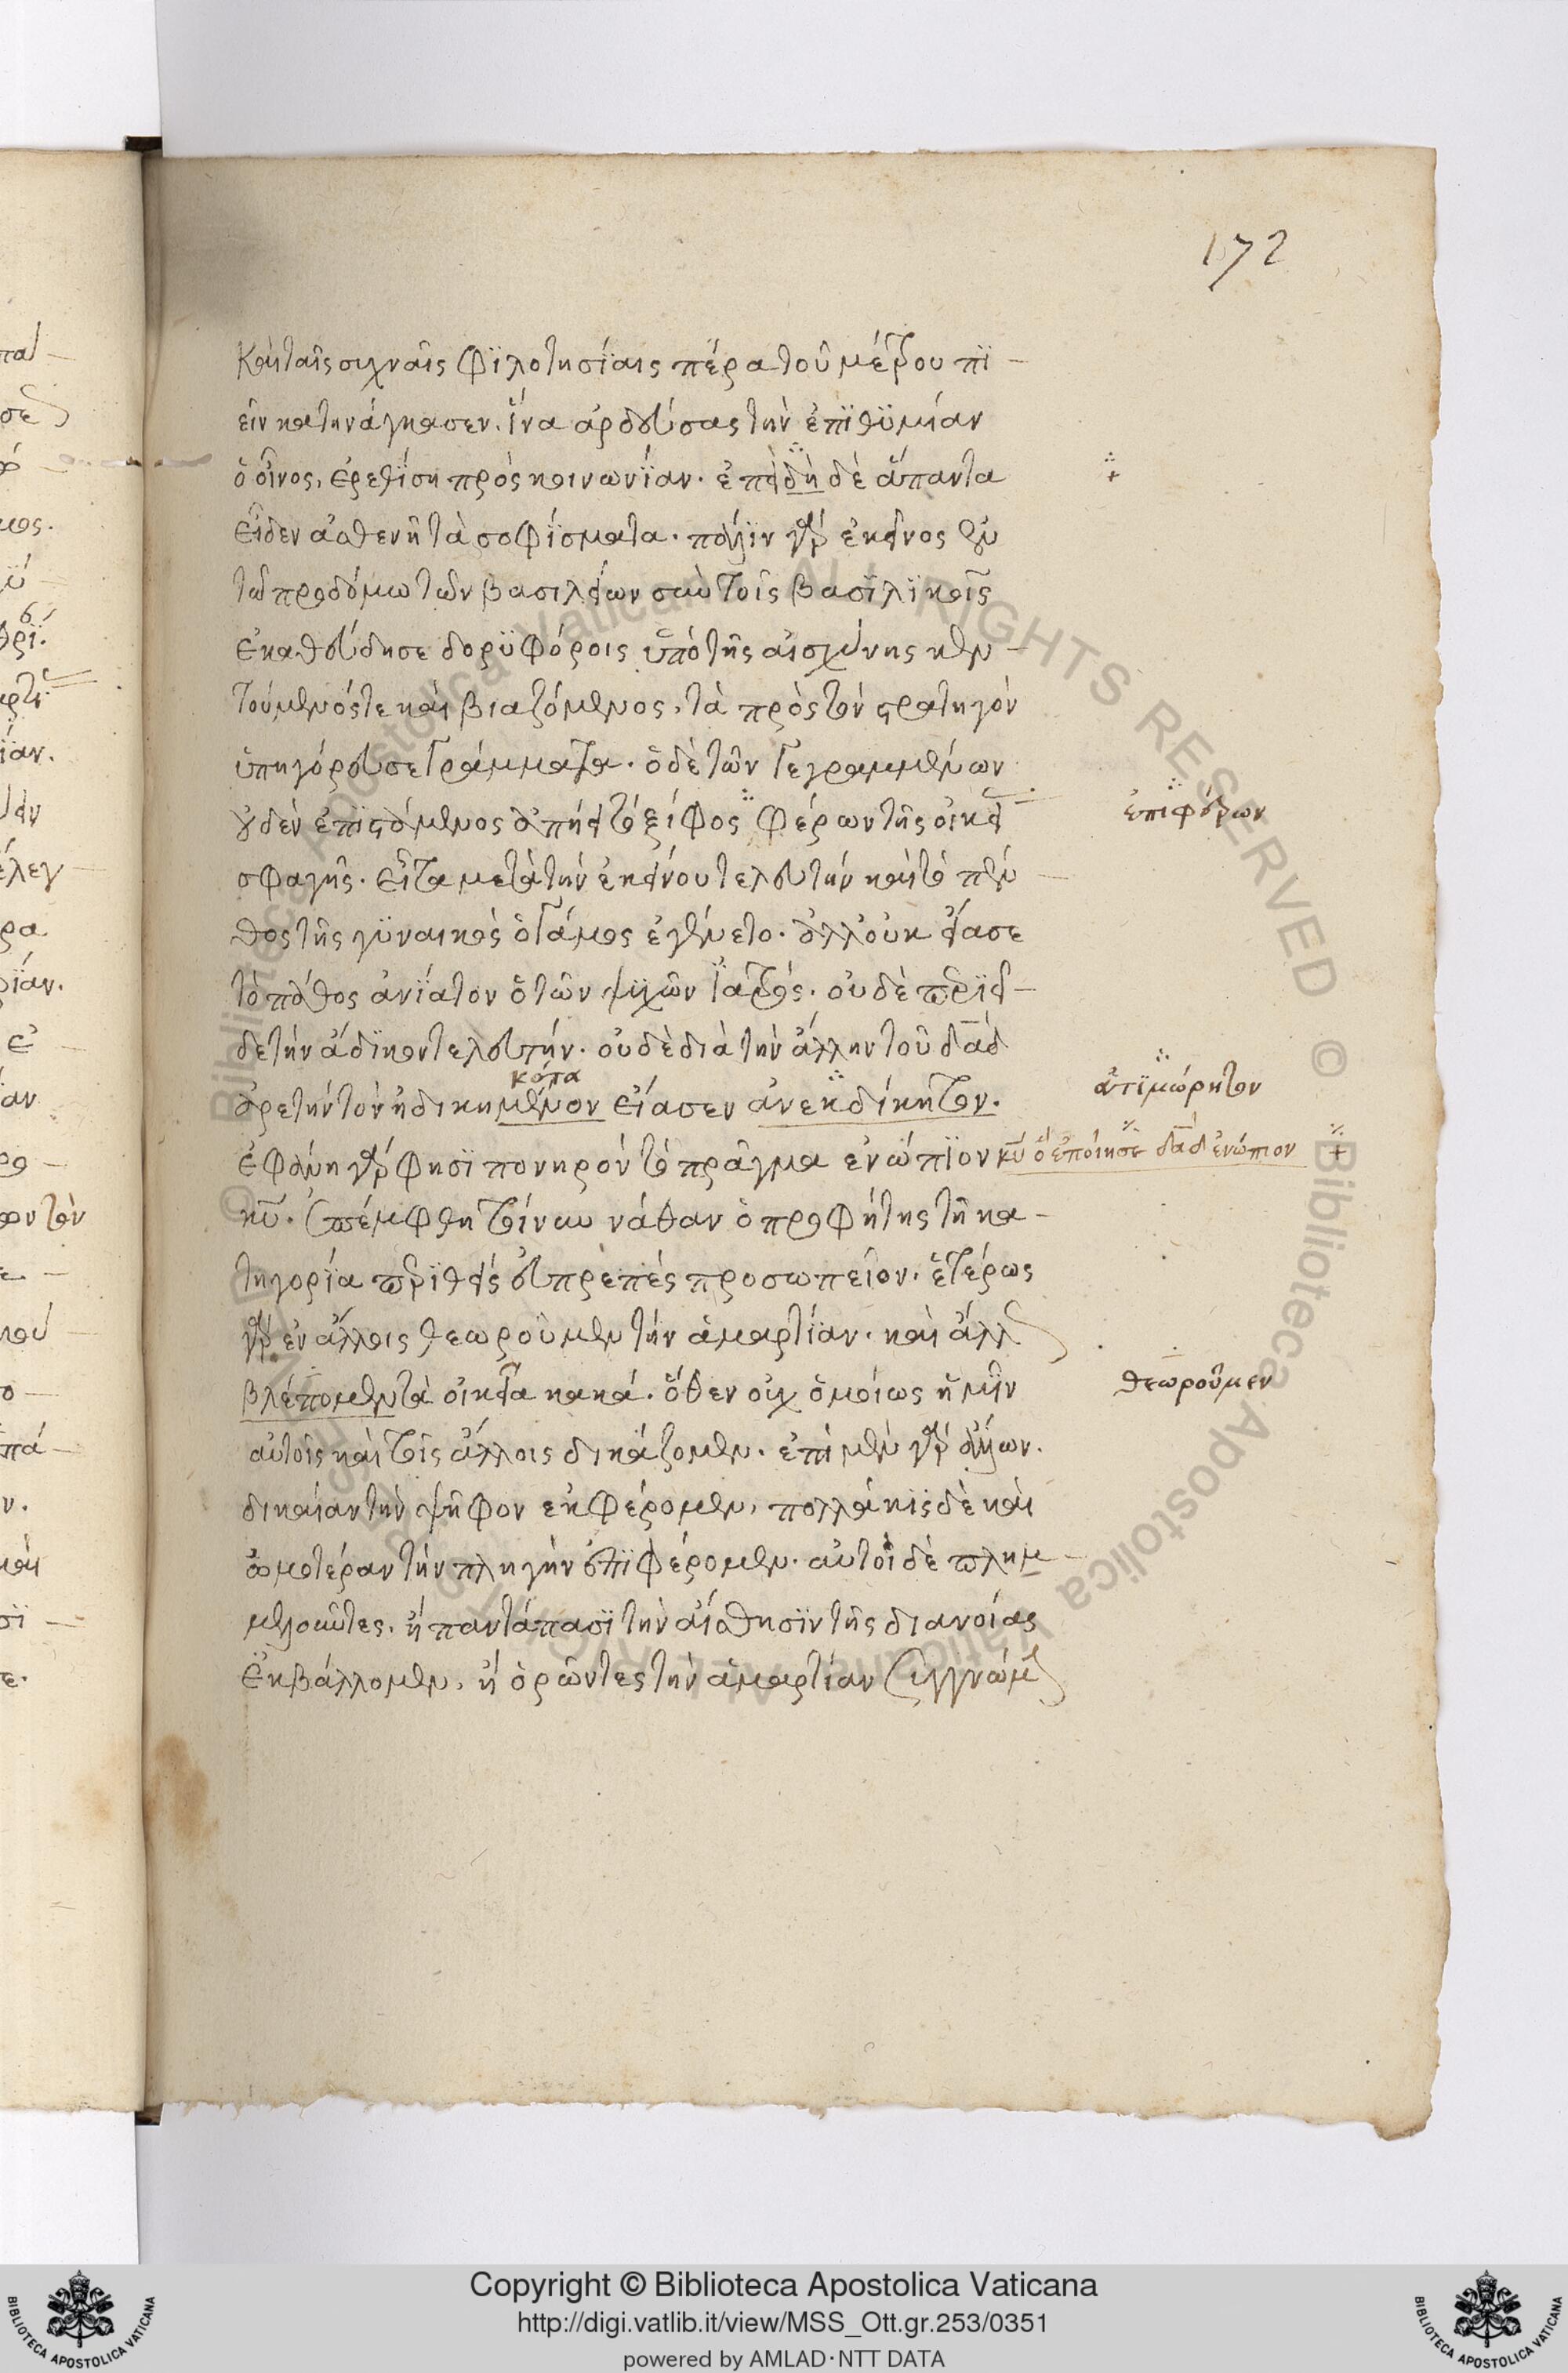 172
καὶ ταῖς συχναῖς φϊλοτησίαις πέρα τοῦ μέτρου πϊ-
εῖν κατηνάγκασεν. ἵνα ἀρδεύσας τὴν ἐπϊθϋμίαν
ὁ οἶνος, ἐρεθίση πρὸς κοινωνίαν. ἐπειδὴ δὲ ἅπαντα
εἶδεν ἀσθενῆ τὰ σοφίσματα. πάλϊν γὰρ ἐκεῖνος ἐν
τῶ προδόμω τῶν βασιλείων σὺν τοῖς βασϊλϊκοῖς
ἐκαθεύδησε δορϋφόροις ὑπὸ τῆς αἰσχύνης κεν-
τούμενός τε καὶ βιαζόμενος, τὰ πρὸς τὸν στρατηγὸν
ὑπηγόρευσε γράμματα. ὁ δὲ τῶν γεγραμμένων
οὐδὲν ἐπιστάμενος ἀπήει τὸ ξίφος φέρων τῆς οἰκεί
ἐπιφέρων
σφαγῆς. εἶτα μετὰ τὴν ἐκείνου τελευτὴν καὶ τὸ πέν-
θος τῆς γϋναικὸς ὁ γάμος ἐγένετο. ἀλλ' οὐκ εἴασε
τὸ πάθος ἀνίατον ὁ τῶν ψυχῶν ἰατρός. οὐδὲ περιεῖ-
δε τὴν ἄδϊκον τελευτήν. οὐδὲ διὰ τὴν ἄλλην τοῦ δαδ
ἀρετὴν τὸν ἠδικημένον εἴασεν ἀνεκδίκητον.
κότα
ἀτϊμώρητον
ἐφάνη γὰρ φησϊ πονηρὸν τὸ πρᾶγμα ἐνώπϊον κυ ὃ ἐποίησε δαδ ἐνώπιον
κυ. ἐπέμφθη τοίνυν νάθαν ὁ προφήτης τῆ κα-
τηγορία περϊθεὶς εὐπρεπὲς προσωπεῖον. ἑτέρως
γὰρ ἐν ἄλλοις θεωροῦμεν τὴν ἁμαρτίαν. καὶ ἄλλ
βλέπομεν τὰ οἰκεῖα κακά. ὅθεν οὐχ ὁμοίως ἡμῖν
θεωροῦμεν
αὐτοῖς καὶ τοῖς ἄλλοις δικάζομεν. ἐπὶ μὲν γὰρ ἄλλων.
δικαίαν τὴν ψῆφον ἐκφέρομεν, πολλάκϊς δὲ καὶ
ὠμοτέραν τὴν πληγὴν ἐπϊφέρομεν. αὐτοὶ δὲ πλημ-
μελοῦντες. ἢ παντάπασϊ τὴν αἴσθησϊν τῆς διανοίας
ἐκβάλλομεν, ἢ ὁρῶντες τὴν ἁμαρτίαν συγγνώμ
Copyright © Biblioteca Apostolica Vaticana
http://digi.vatlib.it/view/MSS_Ott.gr.253/0351
powered by AMLAD·NTT DATA